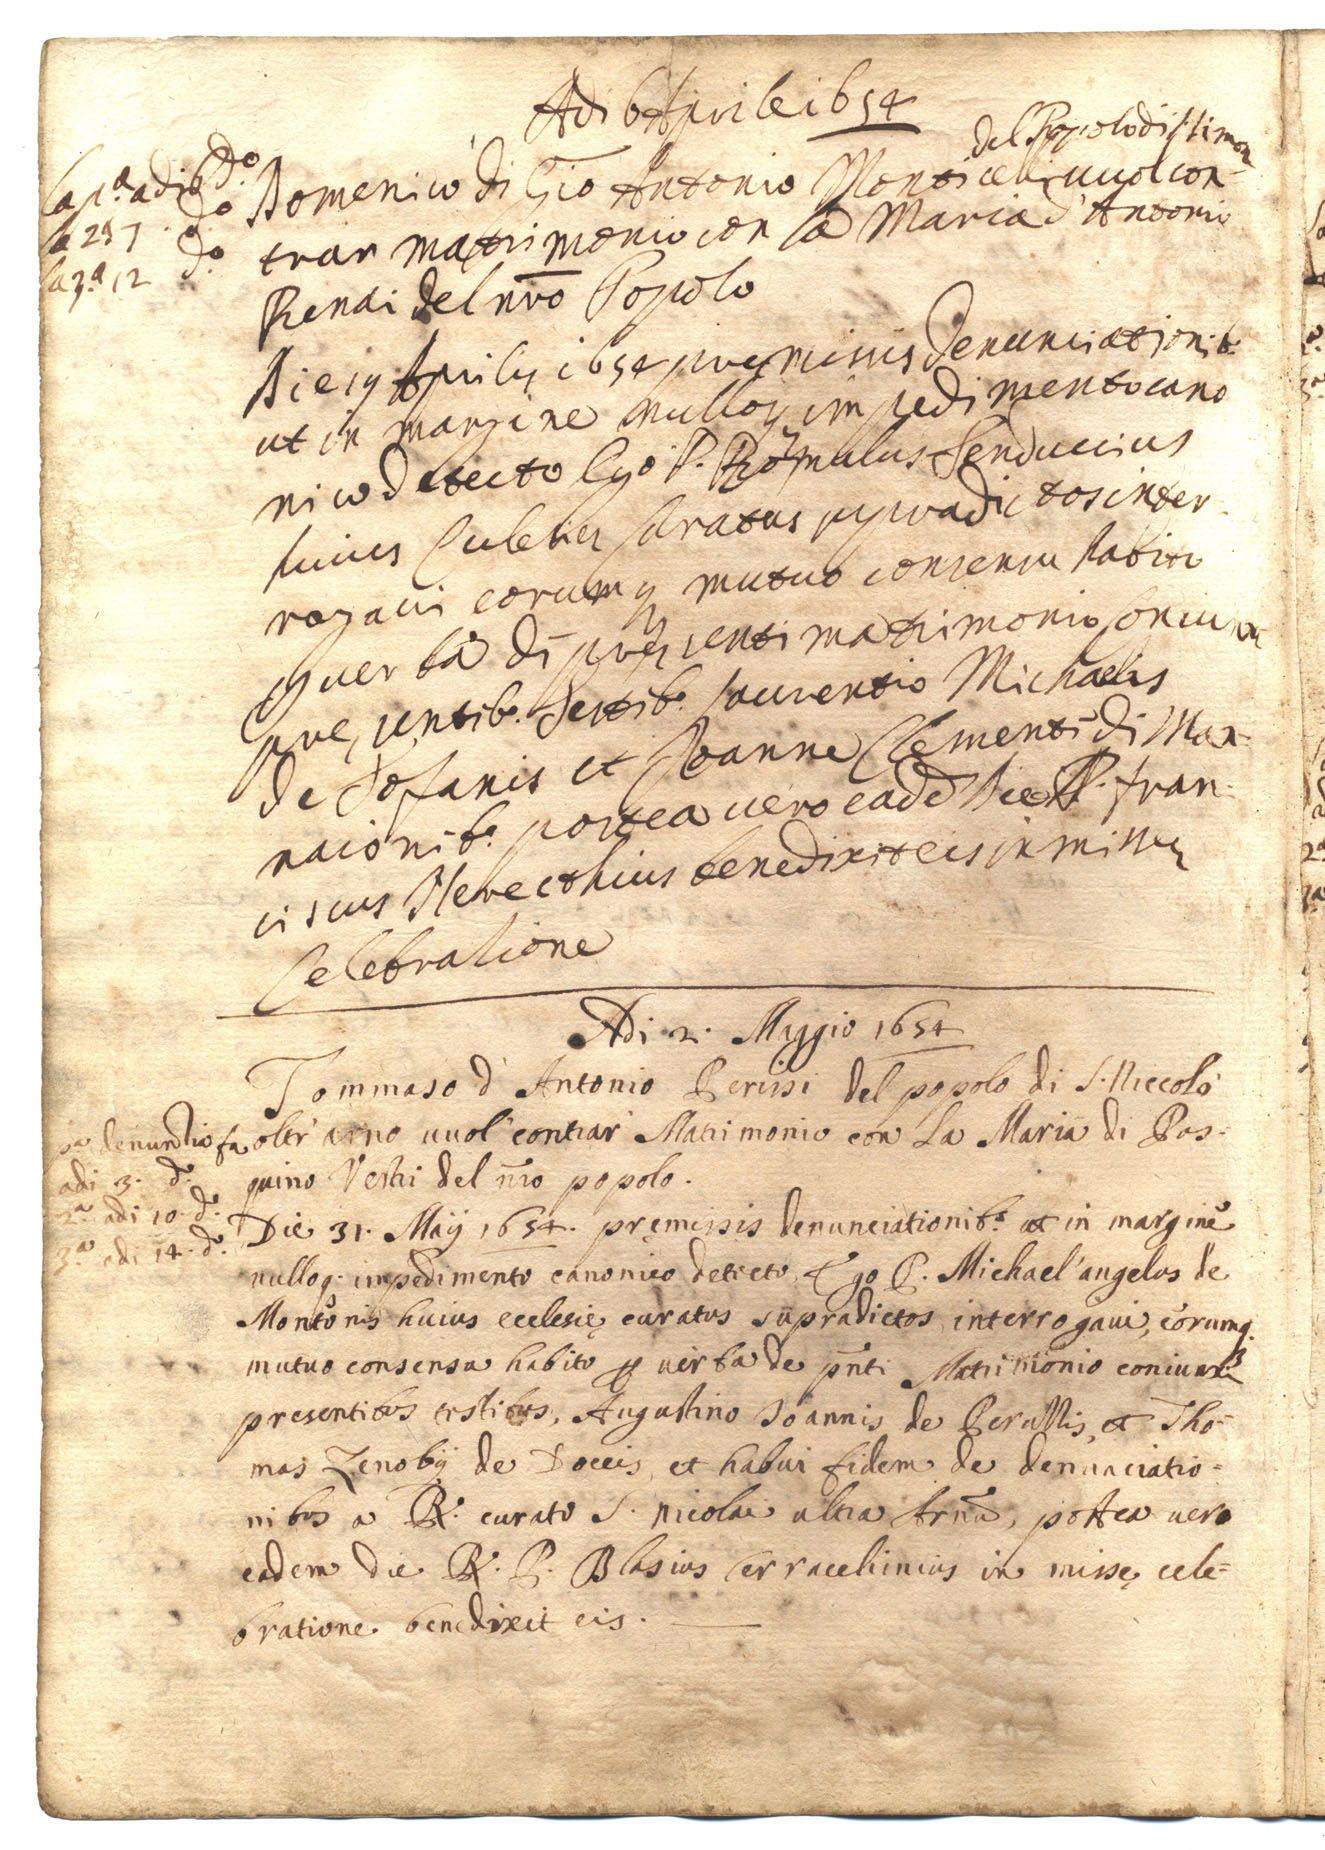 Adi 6 Aprile 1654
del Popolo di S Simon
la p.a adi 6 d.o
la 2a 7 d.o
la 3.a 12 d.o
Domenico di Gio Antonio Monticelli vuol con-
trar matrimonio con la Maria d'Antonio
Renai del nro Popolo
Die 19 Aprilis 1654 premissis denunciationib.
ut in margine nulloq impedimento cano
nico detecto Ego P. Romulus Senduccius
huius Ecclesie Curatus supradictos inter-
rogavi eorumq mutuo consensu habito
p verba di presenti matrimonio coniunxi
presentib. Testib. Laurentio Michaelis
de Tofanis et Joanne Clementi di Mar-
naionib. postea vero eadē die P. Fran-
ciscus benedixit eis in missę
Celebratione
Adi 2. Maggio 1654
Tommaso d'Antonio Perissi del popolo di S. Niccolò
oltr'arno vuol contrar Matrimonio con La Maria di Pas-
quino Vestri del nr̄o popolo.
p.a denuntia fa
adi 3. d.o
2.a adi 10. d.o
3.a adi 14. d.o
Die 31. Maij 1654. pręmissis denunciationib.s ut in margine
nulloq; impedimento canonico detecto, Ego P. Michael'angelus de
Montonis huius ecclesię curatus supradictos interrogavi, eorumq.
mutuo consensu habito p verba de pñti Matrimonio coniunxi
presentibus testibus, Augustino Joannis de Perussis, et Tho-
mas Zenobij de Doccis, et habui fidem de denunciatio-
nibus a R. curato S. Nicolai ultra Arnū, postea vero
eadem die R. P. Blasius Cerracchinius in missę cele-
bratione benedixit eis.